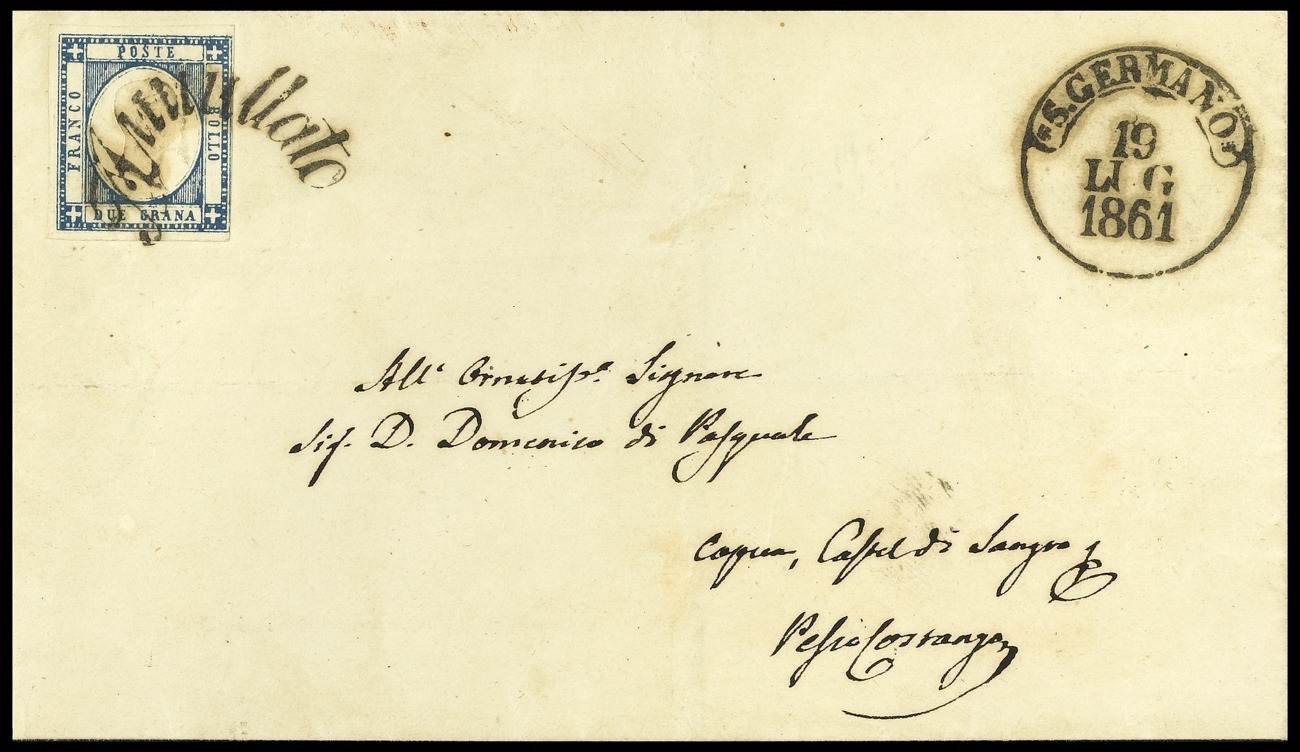 POSTE
FRANCO
BOLLO
DUE GRANA
Annullato
S. GERMANO
19
LUG
1861
All' Ornatiss.º Signore
Sig. D. Domenico di Pasquale
Capua, Castel di Sangro p
PescoCostanzo